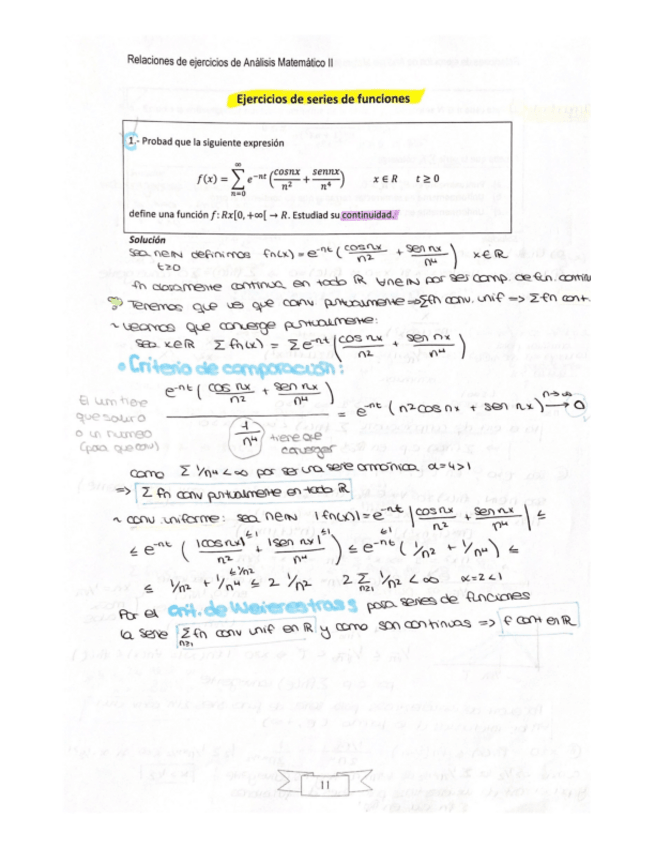 Relaciones de ejercicios de Análisis Matemático II
Ejercicios de series de funciones
1.- Probad que la siguiente expresión
f(x) = ∑_{n=0}^{∞} e^{-nt} (cosnx/n² + sennx/n⁴) x ∈ R t ≥ 0
define una función f: Rx[0, +∞[ → R. Estudiad su continuidad.
Solución
Sea n∈ℕ definimos fn(x) = e^{-nt} (cos nx/n² + sen nx/n⁴) x∈ℝ
t≥0
fn claramente continua en todo ℝ ∀n∈ℕ por ser comp. de fun. continu
Tenemos que ver que conv puntualmente => Σfn conv. unif => Σfn cont.
~ veamos que converge puntualmente:
Sea x∈ℝ Σfn(x) = Σe^{-nt} (cos nx/n² + sen nx/n⁴)
• Criterio de comparación:
e^{-nt} (cos nx/n² + sen nx/n⁴) / (1/n⁴) = e^{-nt} (n²cos nx + sen nx) —n→∞→ 0
El lim tiene
que salir 0
o un numero
(para que conv)
tiene que
converger
como Σ 1/n⁴ < ∞ por ser una serie armónica, α=4>1
=> Σ fn conv puntualmente en todo ℝ
~ conv. uniforme: sea n∈ℕ |fn(x)| = e^{-nt} |cos nx/n² + sen nx/n⁴| ≤
≤ e^{-nt} (|cos nx|^{≤1}/n² + |sen nx|^{≤1}/n⁴) ≤ e^{-nt}^{≤1} (1/n² + 1/n⁴) ≤
≤ 1/n² + 1/n⁴^{≤1/n²} ≤ 2 1/n² 2 Σ_{n≥1} 1/n² < ∞ α=2<1
Por el crit. de Weierestrass para series de funciones
la serie Σ_{n≥1} fn conv unif en ℝ y como son continuas => f cont en ℝ
11